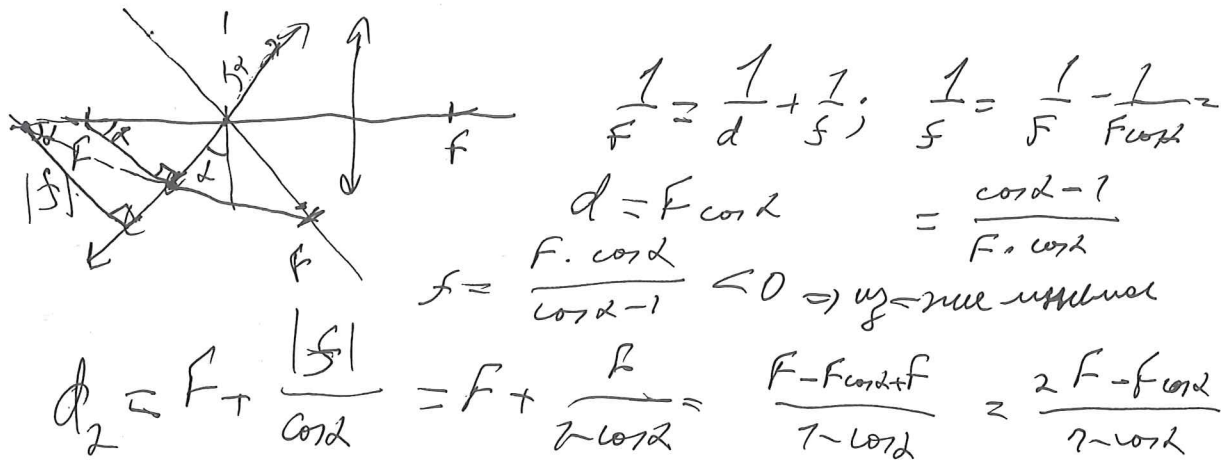 α α α α F |f| F f
1/F = 1/d + 1/f; 1/f = 1/F - 1/(F cosα) =
d = F cosα = (cosα - 1)/(F · cosα)
f = (F · cosα)/(cosα - 1) < 0 ⇒ из-ние мнимое
d₂ = F + |f|/cosα = F + F/(1 - cosα) = (F - F cosα + F)/(1 - cosα) = (2F - F cosα)/(1 - cosα)